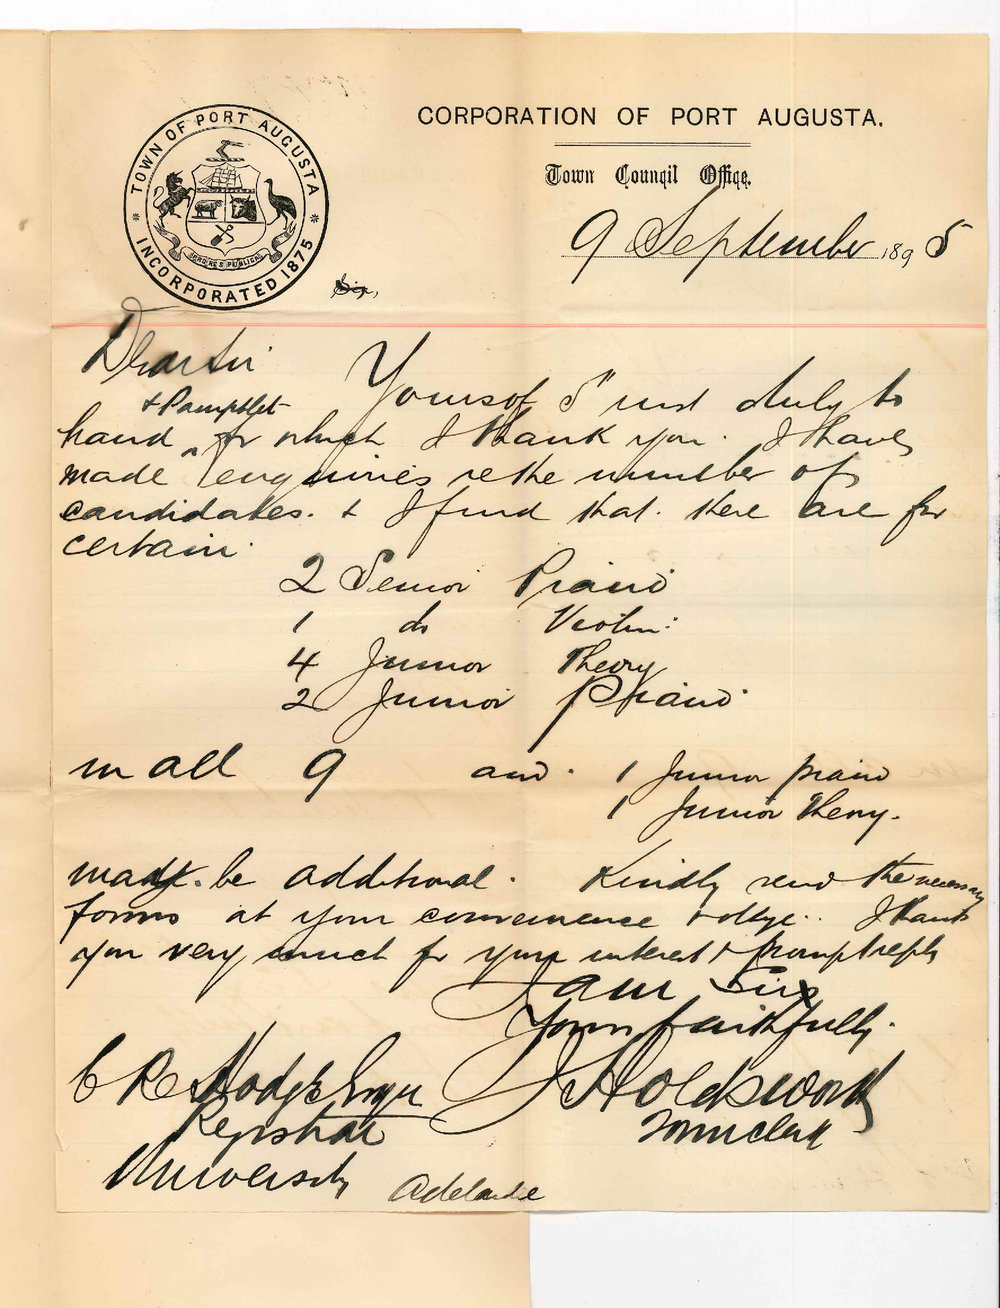 CORPORATION OF PORT AUGUSTA.
TOWN OF PORT AUGUSTA
INCORPORATED 1875
Town Council Office,
9 September 1895
Sir,
Dear Sir
Yours of 5" inst duly to
+ Pamphlet
hand for which I thank you. I have
made enquiries re the number of
candidates. + I find that there are for
certain.
2 Senior Piano
1 do Violin
4 Junior Theory
2 Junior Piano
in all 9 and. 1 Junior piano
1 Junior Theory.
may be additional. Kindly send the necessary
forms at your convenience + oblige. I thank
you very much for your interest + prompt reply
I am Sir
Yours faithfully.
C R Hodge Esqr J Holdsworth
Registrar Town Clerk
University Adelaide